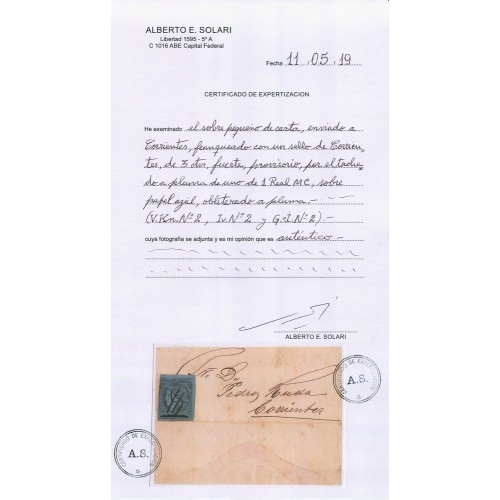 ALBERTO E. SOLARI
Libertad 1595 - 5º A
C 1016 ABE Capital Federal
Fecha 11.05.19
CERTIFICADO DE EXPERTIZACION
He examinado el sobre pequeño de carta, enviado a
Corrientes, franqueado con un sello de Corrien-
tes, de 3 ctvs, fuerte, provisorio, por el tacha-
do a pluma de uno de 1 Real MC, sobre
papel azul, obliterado a pluma. —
(V.K.n. Nº 2, Iv. Nº 2 y G.I. Nº 2) —
cuya fotografía se adjunta y es mi opinión que es auténtico —
ALBERTO E. SOLARI
Pedro
Corrientes
CERTIFICADO DE EXPERTIZACION
A.S.
CERTIFICADO DE EXPERTIZACION
A.S.